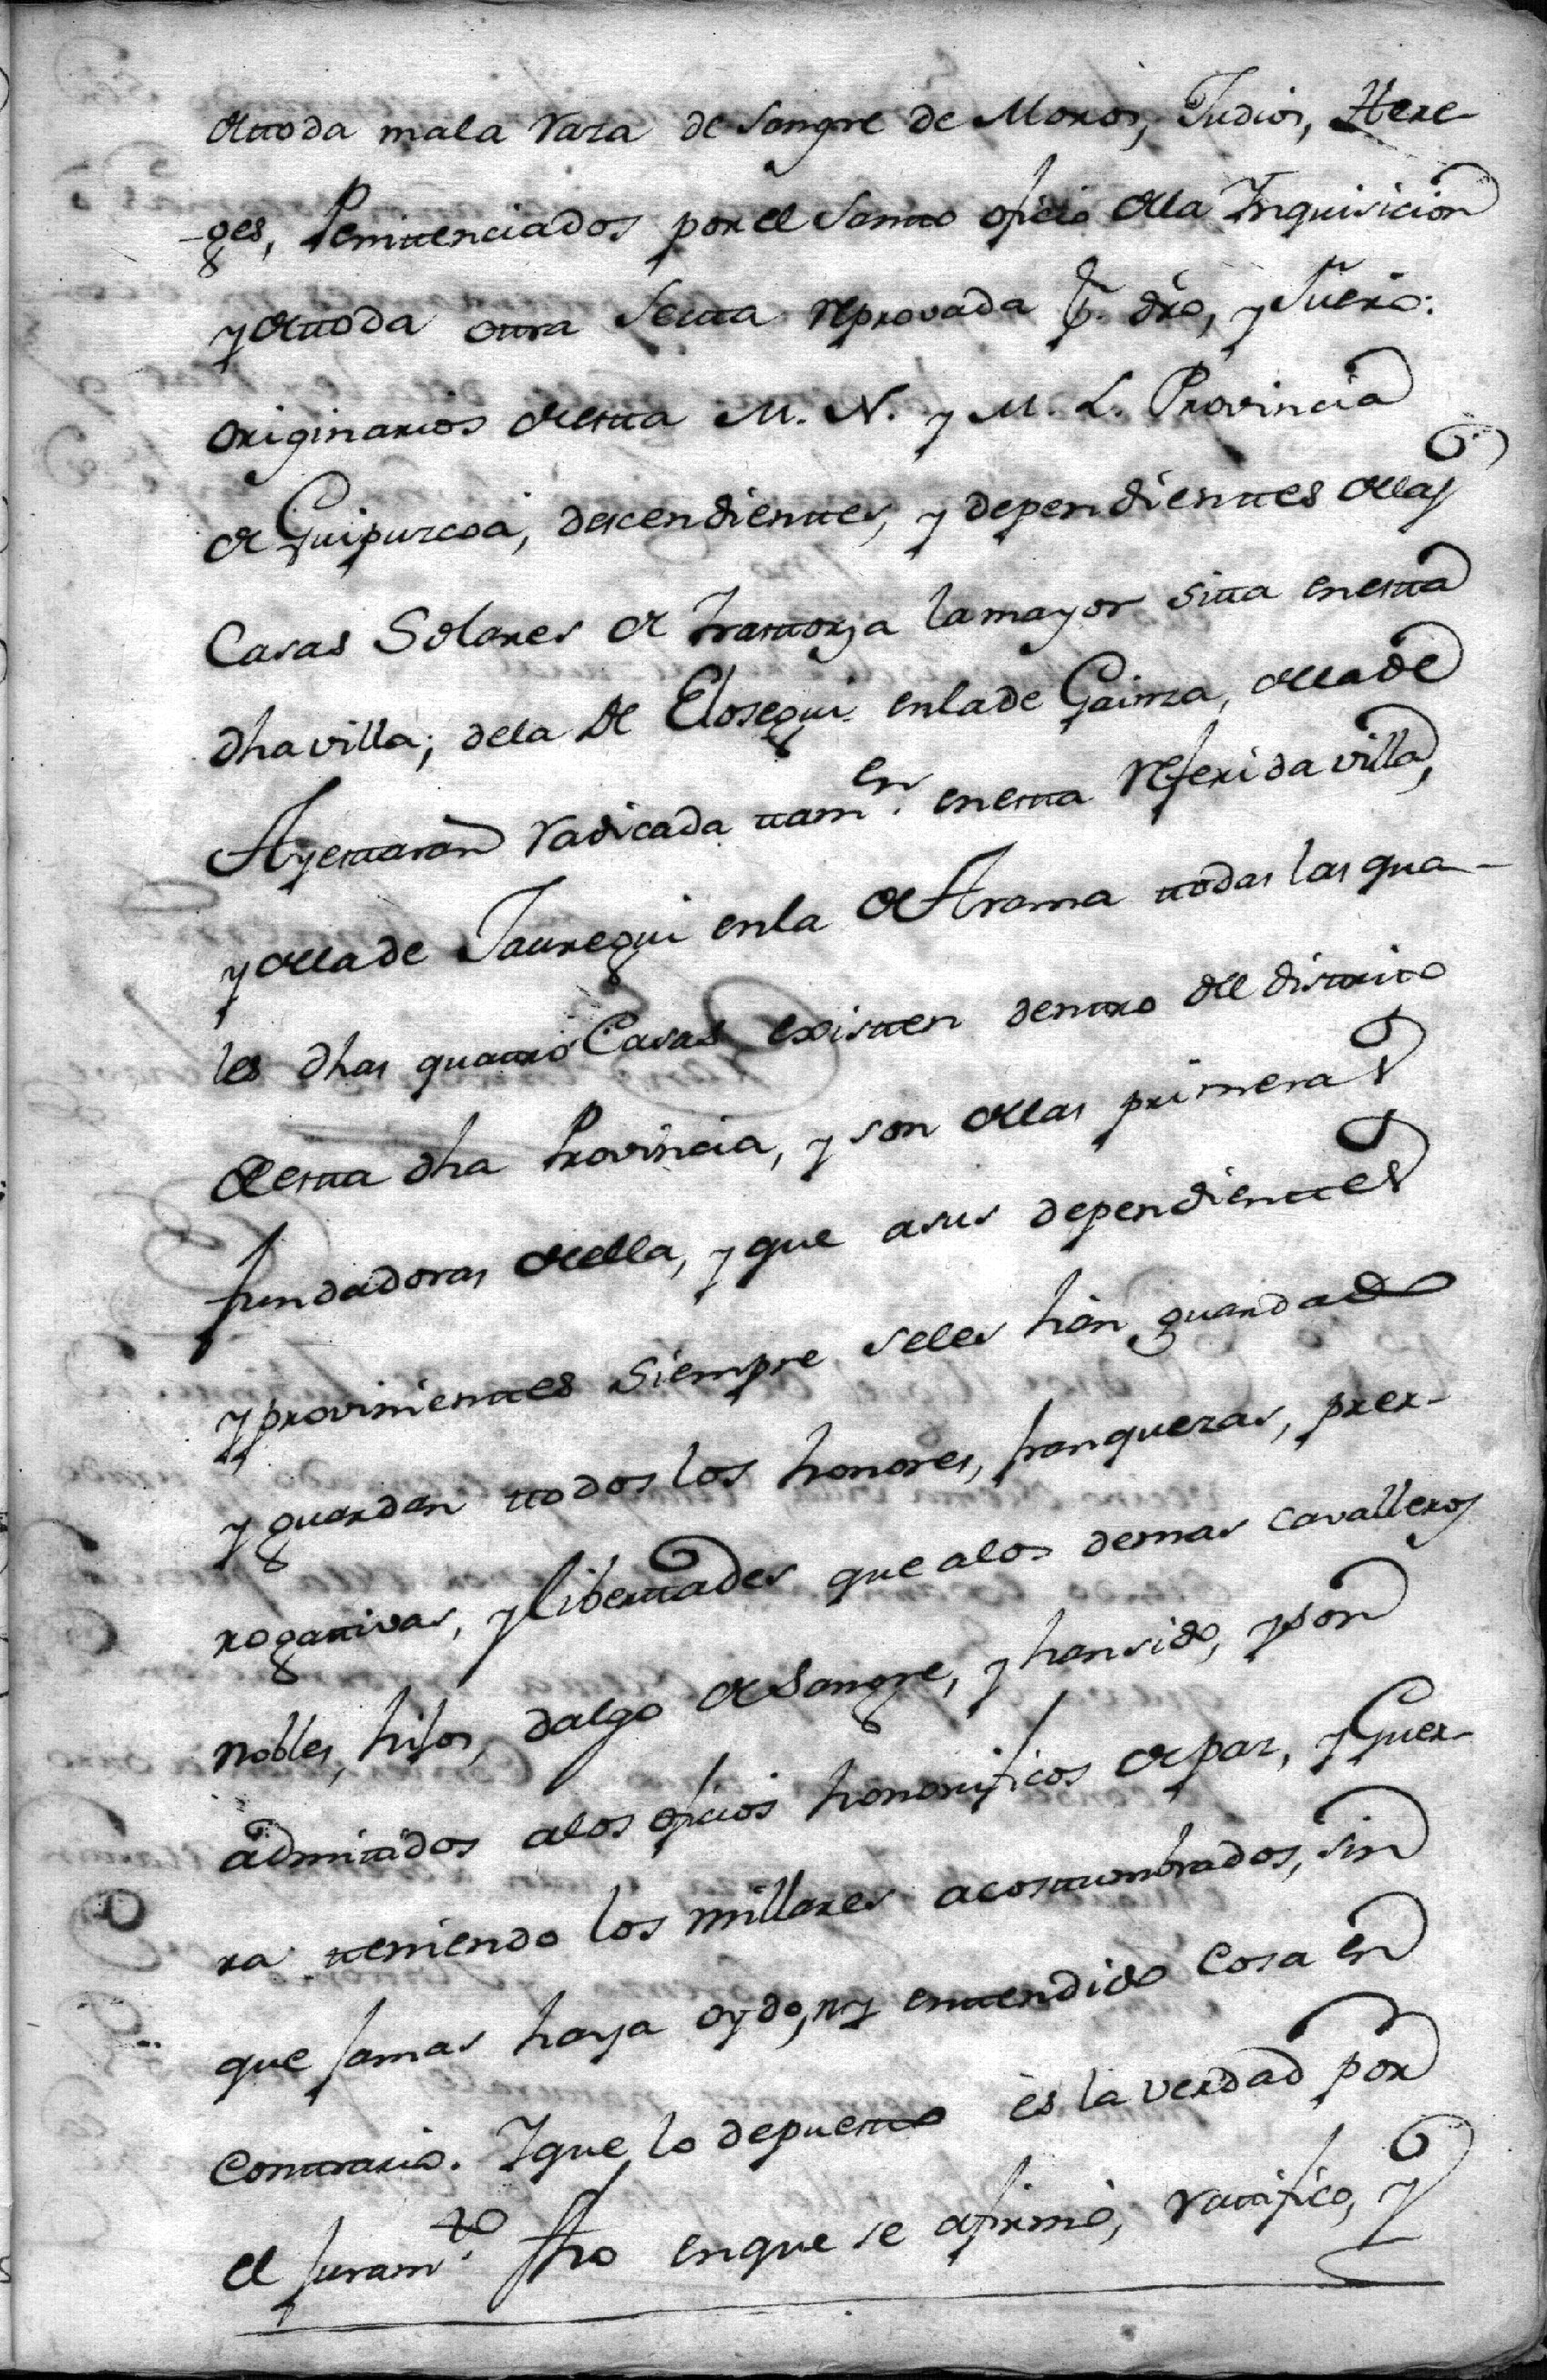 de toda mala raza de sangre de Moros, Judios, Here-
-ges, Penitenciados por el Santo oficio de la Inquisicion
y de toda otra Secta reprovada p. dro, y fuero:
originarios de esta M. N. y M. L. Provincia
de Guipuzcoa, descendientes, y dependientes de las
Casas Solares de Irastorza la mayor sita en esta
dha villa; de la de Elosegui en la de Gainza, de la de
Ayestaran radicada tamen. en esta referida villa,
y de la de Jauregui en la de Arama todas las qua-
les dhas quatro Casas existen dentro del distrito
de esta dha Provincia, y son de las primeras
fundadoras de ella, y que a sus dependientes
y provinientes siempre se les han guardado
y guardan todos los honores, franquezas, prer-
rogativas, y libertades que a los demas cavalleros
nobles, hijos, dalgo de Sangre, y han sido, y son
admitidos a los oficios honorificos de paz, y Guer-
ra teniendo los millares acostumbrados, sin
que jamas haya oydo, ny entendido Cosa en
Contrario. I que lo depuesto es la verdad por
el juramto. fho en que se afirmó, ratificó, y